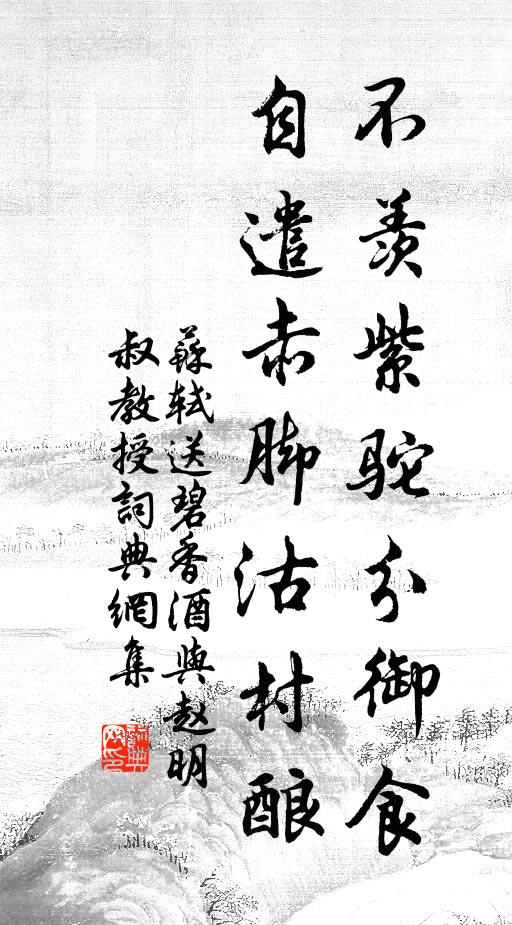 不羨紫駝分御食
自遣赤脚沽村酿
蘇軾送碧香酒與赵明
叔教授詞典網集